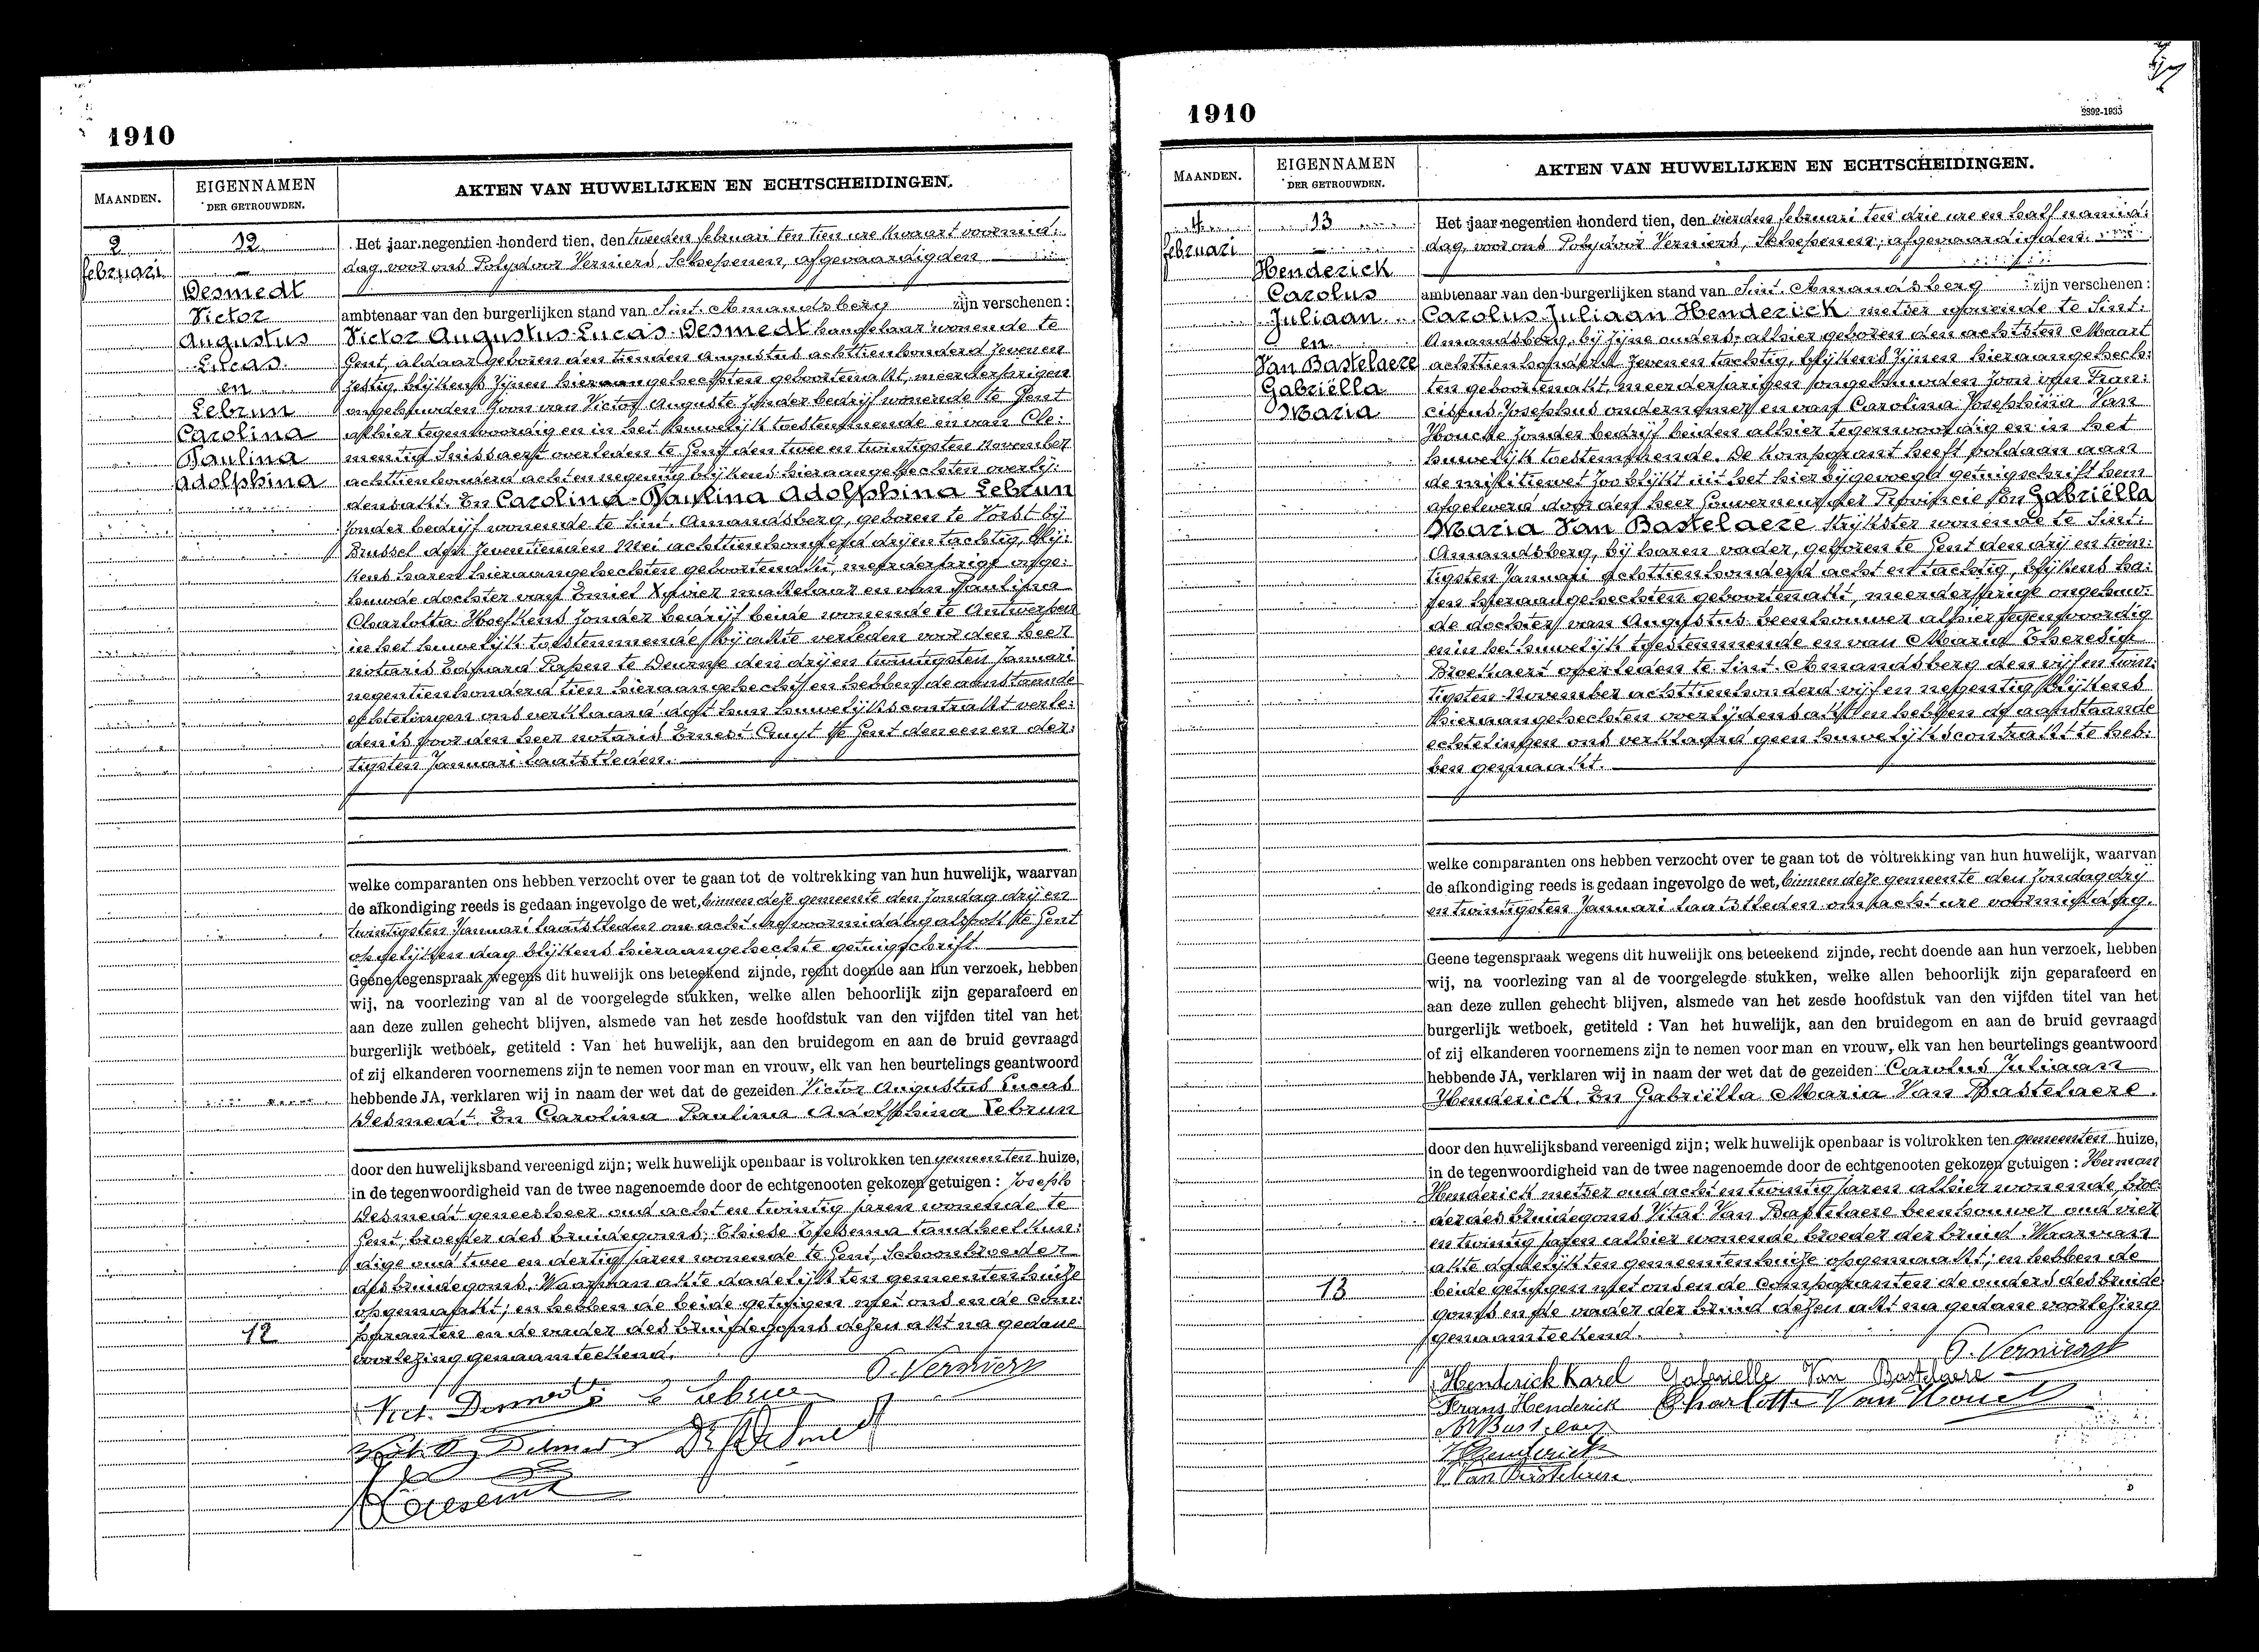 1910
MAANDEN.
EIGENNAMEN
DER GETROUWDEN.
AKTEN VAN HUWELIJKEN EN ECHTSCHEIDINGEN.
2
februari
12
Desmedt
Victor
Augustus
Lucas
en
Lebrun
Carolina
Paulina
Adolphina
Het jaar negentien honderd tien, den tweeden februari ten tien ure kwaart voormid:
dag, voor ons Polydoor Verniers, Schepenen, afgevaardigden
ambtenaar van den burgerlijken stand van Sint Amandsberg zijn verschenen :
Victor Augustus Lucas Desmedt hangelaar wonende te
Gent, aldaar geboren den tienden Augustus achttienhonderd zeven en
zestig, blijkens zijnen hieraangehechten geboortenakt, meerderjarigen
ongehuwden zoon van Victor Auguste zonder bedrijf wonende te Gent
alhier tegenwoordig en in het huwelijk toestemmende en van Cle:
mentia Snissaert overleden te Gent den twee en twintigsten november
achttienhonderd acht en negentig blijkens hieraangehechten overlij:
densakt. En Carolina Paulina Adolphina Lebrun
zonder bedrijf wonende te Sint Amandsberg, geboren te Vorst bij
Brussel den zeventienden Mei achttienhonderd drij en tachtig, blij:
kens haren hieraangehechten geboortenakt, meerderjarige onge:
huwde dochter van Emiel Xavier makelaar en van Paulina
Charlotta Hoefkens zonder bedrijf beide wonende te Antwerpen
in het huwelijk toestemmende bij akte verleden voor den heer
notaris Eduard Papen te Deurne den drij en twintigsten Januari
negentienhonderd tien hieraangehecht en hebben de aanstaande
echtelingen ons verklaard dat hun huwelijkscontrakt verle:
den is voor den heer notaris Ernest Cruyt te Gent den eenen der:
tigsten Januari laatstleden.
welke comparanten ons hebben verzocht over te gaan tot de voltrekking van hun huwelijk, waarvan
de afkondiging reeds is gedaan ingevolge de wet, binnen deze gemeente den zondag drij en
twintigsten Januari laatstleden om acht ure voormiddag alsook te Gent
op gelijken dag blijkens hieraangehechte getuigschrift.
Geene tegenspraak wegens dit huwelijk ons beteekend zijnde, recht doende aan hun verzoek, hebben
wij, na voorlezing van al de voorgelegde stukken, welke allen behoorlijk zijn geparafeerd en
aan deze zullen gehecht blijven, alsmede van het zesde hoofdstuk van den vijfden titel van het
burgerlijk wetboek, getiteld : Van het huwelijk, aan den bruidegom en aan de bruid gevraagd
of zij elkanderen voornemens zijn te nemen voor man en vrouw, elk van hen beurtelings geantwoord
hebbende JA, verklaren wij in naam der wet dat de gezeiden Victor Augustus Lucas
Desmedt. En Carolina Paulina Adolphina Lebrun
door den huwelijksband vereenigd zijn; welk huwelijk openbaar is voltrokken ten gemeenten huize,
in de tegenwoordigheid van de twee nagenoemde door de echtgenooten gekozen getuigen : Joseph
Desmedt geneesheer oud acht en twintig jaren wonende te
Gent, broeder des bruidegoms; tandheelkun:
dige oud twee en dertig jaren wonende te Gent, Schoonbroeder
des bruidegoms. Waarvan akte dadelijk ten gemeentenhuize
opgemaakt; en hebben de beide getuigen met ons en de com:
paranten en de vader des bruidegoms dezen akt na gedane
voorlezing genaamteekend.
12
P. Verniers
Vict. Desmedt C Lebrun
1910
2892-1935
MAANDEN.
EIGENNAMEN
DER GETROUWDEN.
AKTEN VAN HUWELIJKEN EN ECHTSCHEIDINGEN.
4
februari
13
Henderick
Carolus
Juliaan
en
Van Bastelaere
Gabriëlla
Maria
Het jaar negentien honderd tien, den vierden februari ten drie ure en half namid:
dag, voor ons Polydoor Verniers, Schepenen, afgevaardigden
ambtenaar van den burgerlijken stand van Sint Amandsberg zijn verschenen :
Carolus Juliaan Henderick metser wonende te Sint:
Amandsberg, bij zijne ouders, alhier geboren den achtsten Maart
achttienhonderd zeven en tachtig, blijkens zijnen hieraangehech:
ten geboortenakt, meerderjarigen ongehuwden zoon van Fran:
ciscus Josephus ondernemer en van Carolina Josephina Van
Houcke zonder bedrijf beiden alhier tegenwoordig en in het
huwelijk toestemmende. De komparant heeft voldaan aan
de militiewet zoo blijkt uit het hierbijgevoegd getuigschrift hem
afgeleverd door den heer Gouverneur der Provincie En Gabriëlla
Maria Van Bastelaere strijkster wonende te Sint:
Amandsberg, bij haren vader, geboren te Gent den drij en twin:
tigsten Januari achttienhonderd acht en tachtig, blijkens ha:
ren hieraangehechten geboortenakt, meerderjarige ongehuw:
de dochter van Augustus beenhouwer alhier tegenwoordig
en in het huwelijk toestemmende en van Maria Theresia
Broekaert overleden te Sint Amandsberg den vijf en twin:
tigsten November achttienhonderd vijf en negentig blijkens
hieraangehechten overlijdensakt en hebben de aanstaande
echtelingen ons verklaard geen huwelijkscontrakt te heb:
ben gemaakt.
welke comparanten ons hebben verzocht over te gaan tot de voltrekking van hun huwelijk, waarvan
de afkondiging reeds is gedaan ingevolge de wet, binnen deze gemeente den zondag drij
en twintigsten Januari laatstleden om acht ure voormiddag.
Geene tegenspraak wegens dit huwelijk ons beteekend zijnde, recht doende aan hun verzoek, hebben
wij, na voorlezing van al de voorgelegde stukken, welke allen behoorlijk zijn geparafeerd en
aan deze zullen gehecht blijven, alsmede van het zesde hoofdstuk van den vijfden titel van het
burgerlijk wetboek, getiteld : Van het huwelijk, aan den bruidegom en aan de bruid gevraagd
of zij elkanderen voornemens zijn te nemen voor man en vrouw, elk van hen beurtelings geantwoord
hebbende JA, verklaren wij in naam der wet dat de gezeiden Carolus Juliaan
Henderick. En Gabriëlla Maria Van Bastelaere.
door den huwelijksband vereenigd zijn; welk huwelijk openbaar is voltrokken ten gemeenten huize,
in de tegenwoordigheid van de twee nagenoemde door de echtgenooten gekozen getuigen : Herman
Henderick metser oud acht en twintig jaren alhier wonende, broe:
der des bruidegoms Vital Van Bastelaere beenhouwer oud vier
en twintig jaren alhier wonende, broeder der bruid. Waarvan
akte dadelijk ten gemeentenhuize opgemaakt; en hebben de
beide getuigen met ons en de comparanten de ouders des bruide
goms en de vader der bruid dezen akt na gedane voorlezing
genaamteekend.
13
P. Verniers
Henderick Karel Gabrielle Van Bastelaere
Frans Henderick Charlotte Van Houcke
H Henderick
V Van Bastelaere